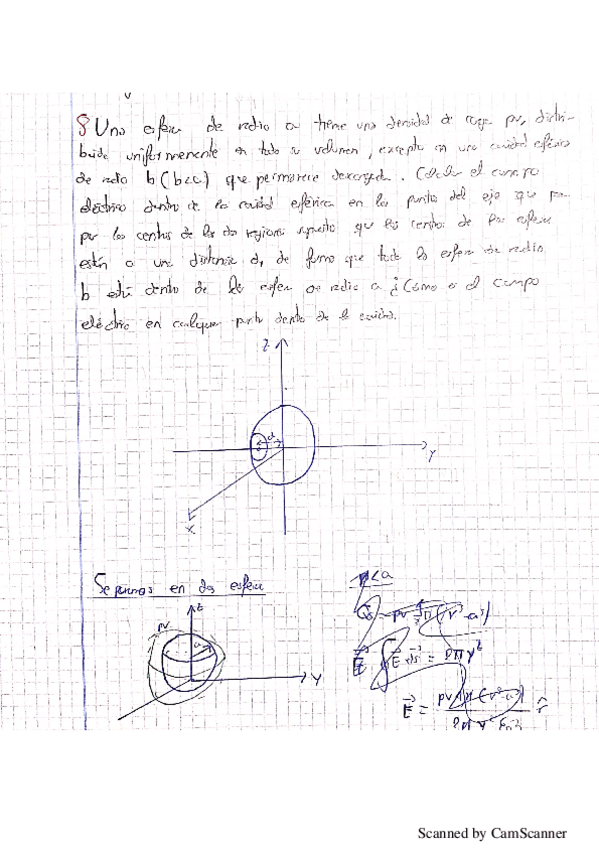 8 Una esfera de radio a tiene una densidad de carga ρv, distri-
buida uniformemente en todo su volumen, excepto en una cavidad esférica
de radio b (b<a) que permanece descargada. Calcular el campo
eléctrico dentro de la cavidad esférica en los puntos del eje que pasa
por los centros de las dos regiones supuesto que los centros de las esferas
están a una distancia d, de forma que toda la esfera de radio
b está dentro de la esfera de radio a ¿Cómo es el campo
eléctrico en cualquier parte dentro de la cavidad.
z
d
y
x
Separamos en dos esferas
r<a
z
ρv
a
y
Scanned by CamScanner